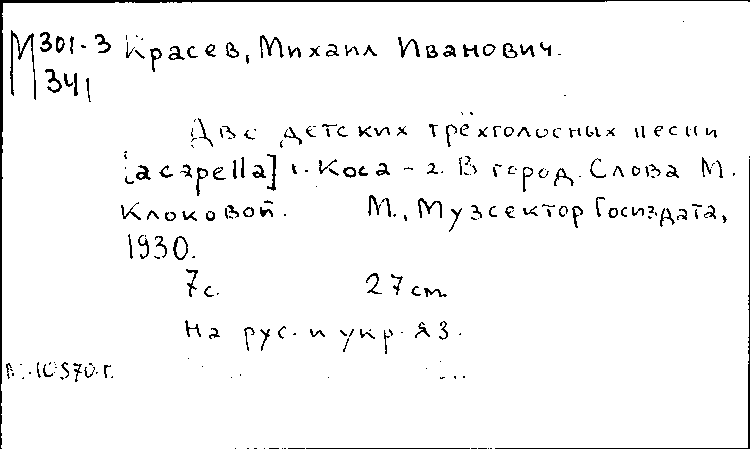 М 301-3 Красев, Михаил Иванович.
341
Две детских трёхголосных песни
[acapella] 1. Коса - 2. В город. Слова М.
Клоковой. М., Музсектор Госиздата,
1930.
7с. 27cm.
На рус. и укр. яз.
10570.г.